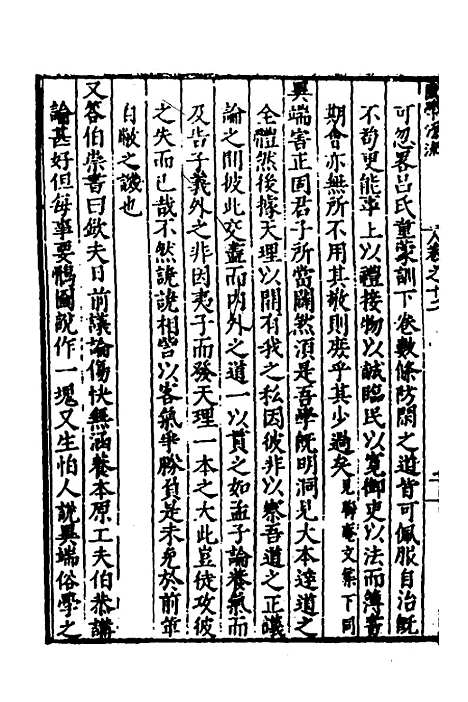 卷之十二
可忽畧呂氏童蒙訓下卷數條防閑之道皆可佩服自治既
不苟更能事上以禮接物以誠臨民以寬御吏以法而簿書
期會亦無所不用其敬則庶乎其少過矣見晦菴文集下同
異端害正固君子所當闢然須是吾學既明洞見大本達道之
全體然後據天理以開有我之私因彼非以察吾道之正議
論之間彼此交盡而內外之道一以貫之如孟子論養氣而
及告子義外之非因夷子而發天理一本之大此豈徒攻彼
之失而已哉不然譊譊相訾以客氣爭勝負是未免於前輩
自敝之譏也
又答伯崇書曰欽夫日前議論傷快無涵養本原工夫伯恭講
論甚好但每事要鶻圇說作一塊又生怕人說異端俗學之